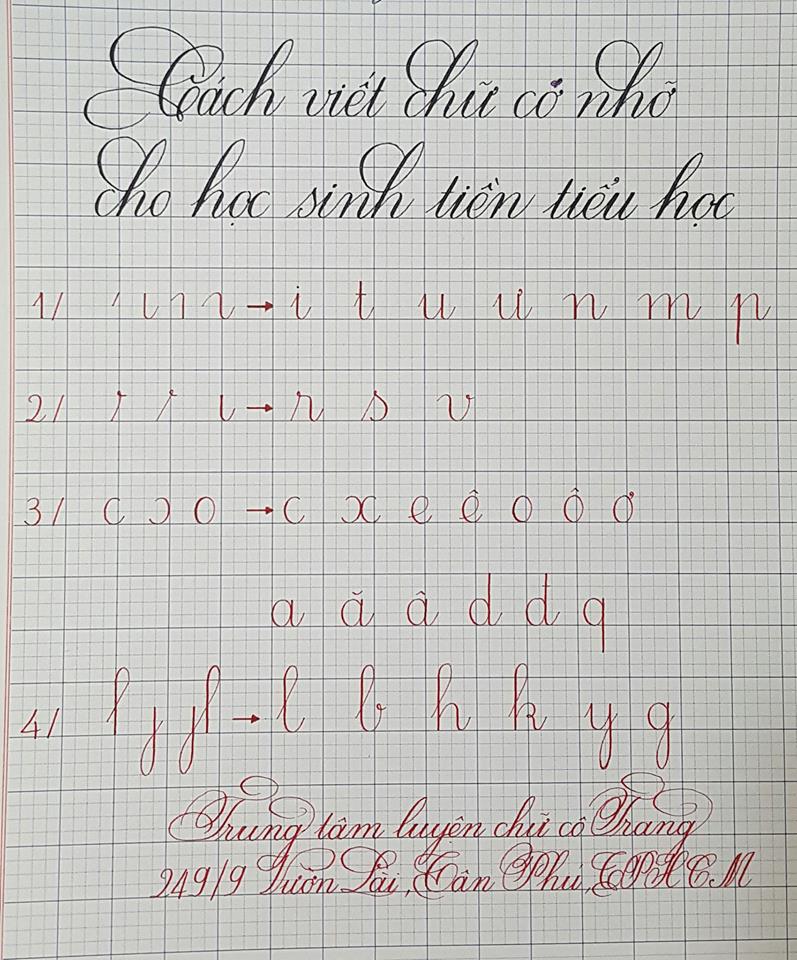 Cách viết chữ cỡ nhỡ
cho học sinh tiền tiểu học
1/ → i t u ư n m p
2/ → r s v
3/ c ɔ o → c x e ê o ô ơ
a ă â d đ q
4/ → l b h k y g
Trung tâm luyện chữ cô Trang
249/9 Vườn Lài, Tân Phú, TPHCM